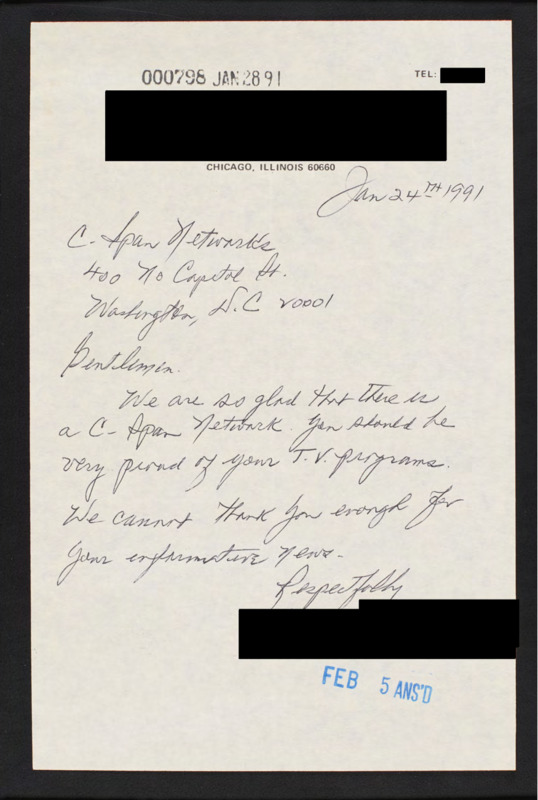 000798 JAN 28 91
TEL:
CHICAGO, ILLINOIS 60660
Jan 24TH 1991
C-Span Networks
400 No Capitol St.
Washington, D.C 20001
Gentlemen.
We are so glad that there is
a C-Span Network. You should be
very proud of your T.V. programs.
We cannot thank you enough for
your informative news.
Respectfully
FEB 5 ANS'D